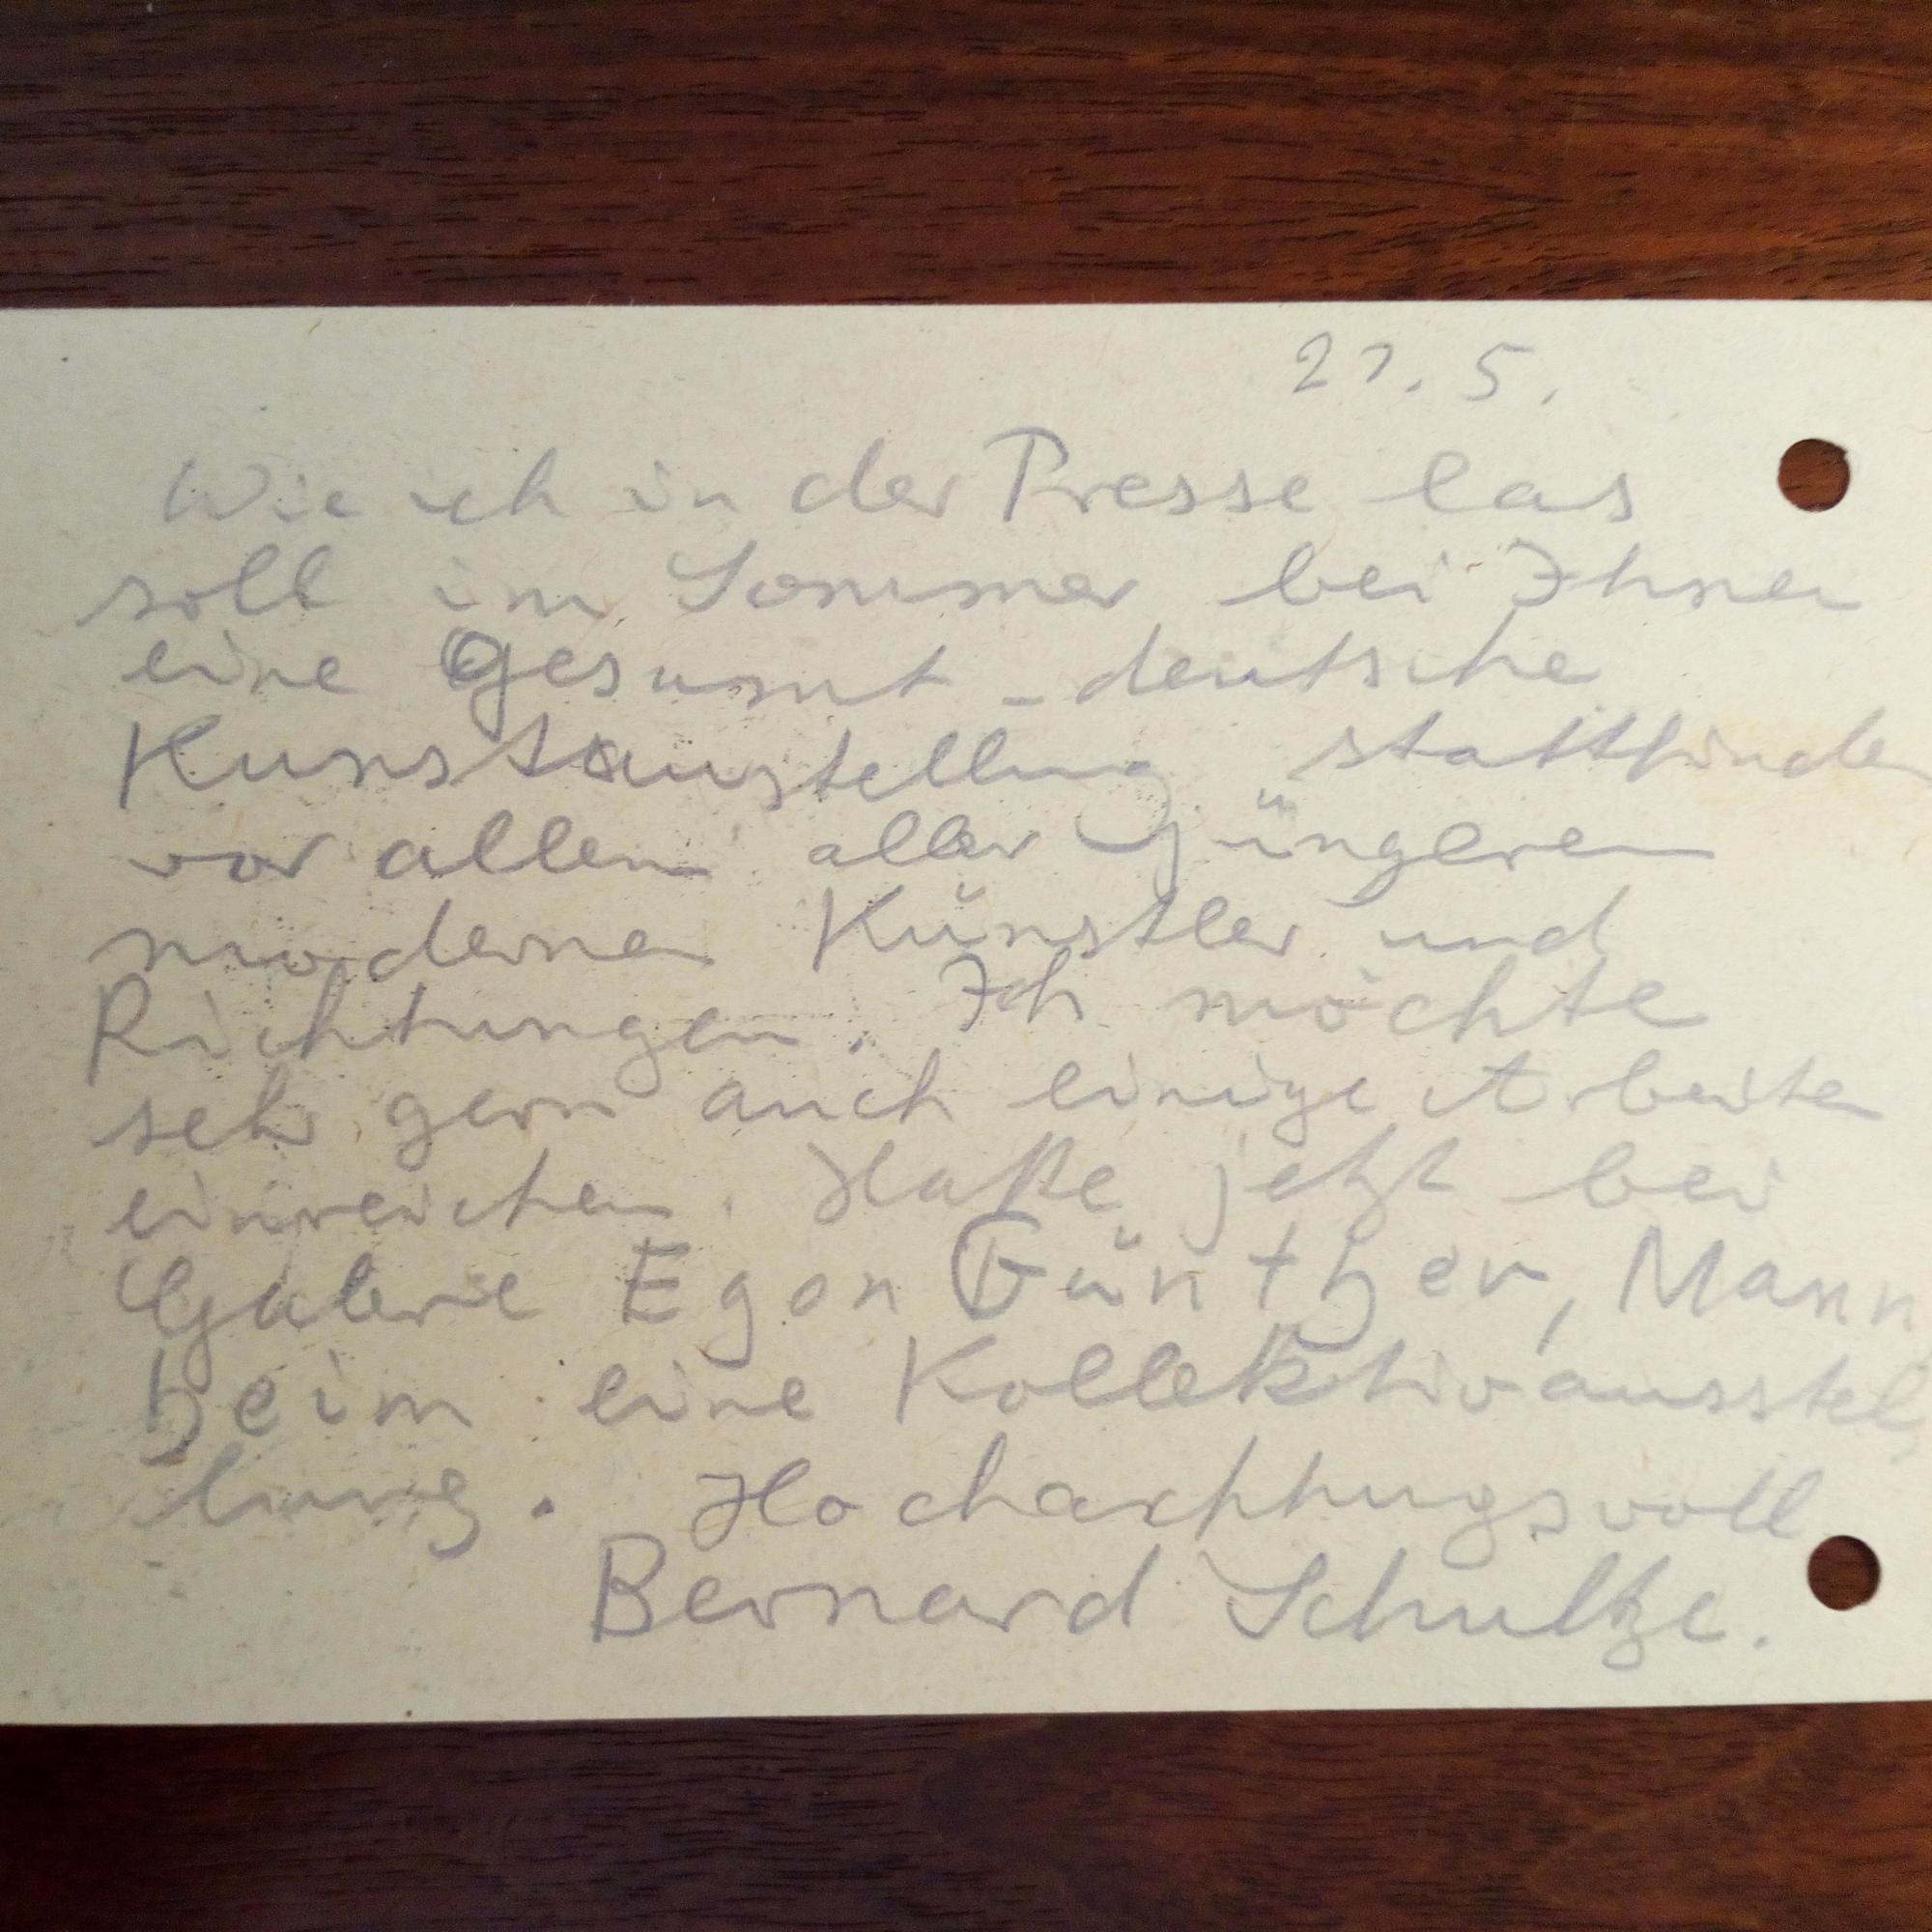 21. 5.
Wie ich in der Presse las
soll im Sommer bei Ihnen
eine Gesamt-deutsche
Kunstaustellung stattfinden
vor allem aller jüngeren
moderner Künstler und
Richtungen. Ich möchte
sehr gern auch einige Arbeiten
einreichen. Hatte jetzt bei
Galerie Egon Günther, Mann
heim eine Kollektivausstel
lung. Hochachtungsvoll
Bernard Schultze.